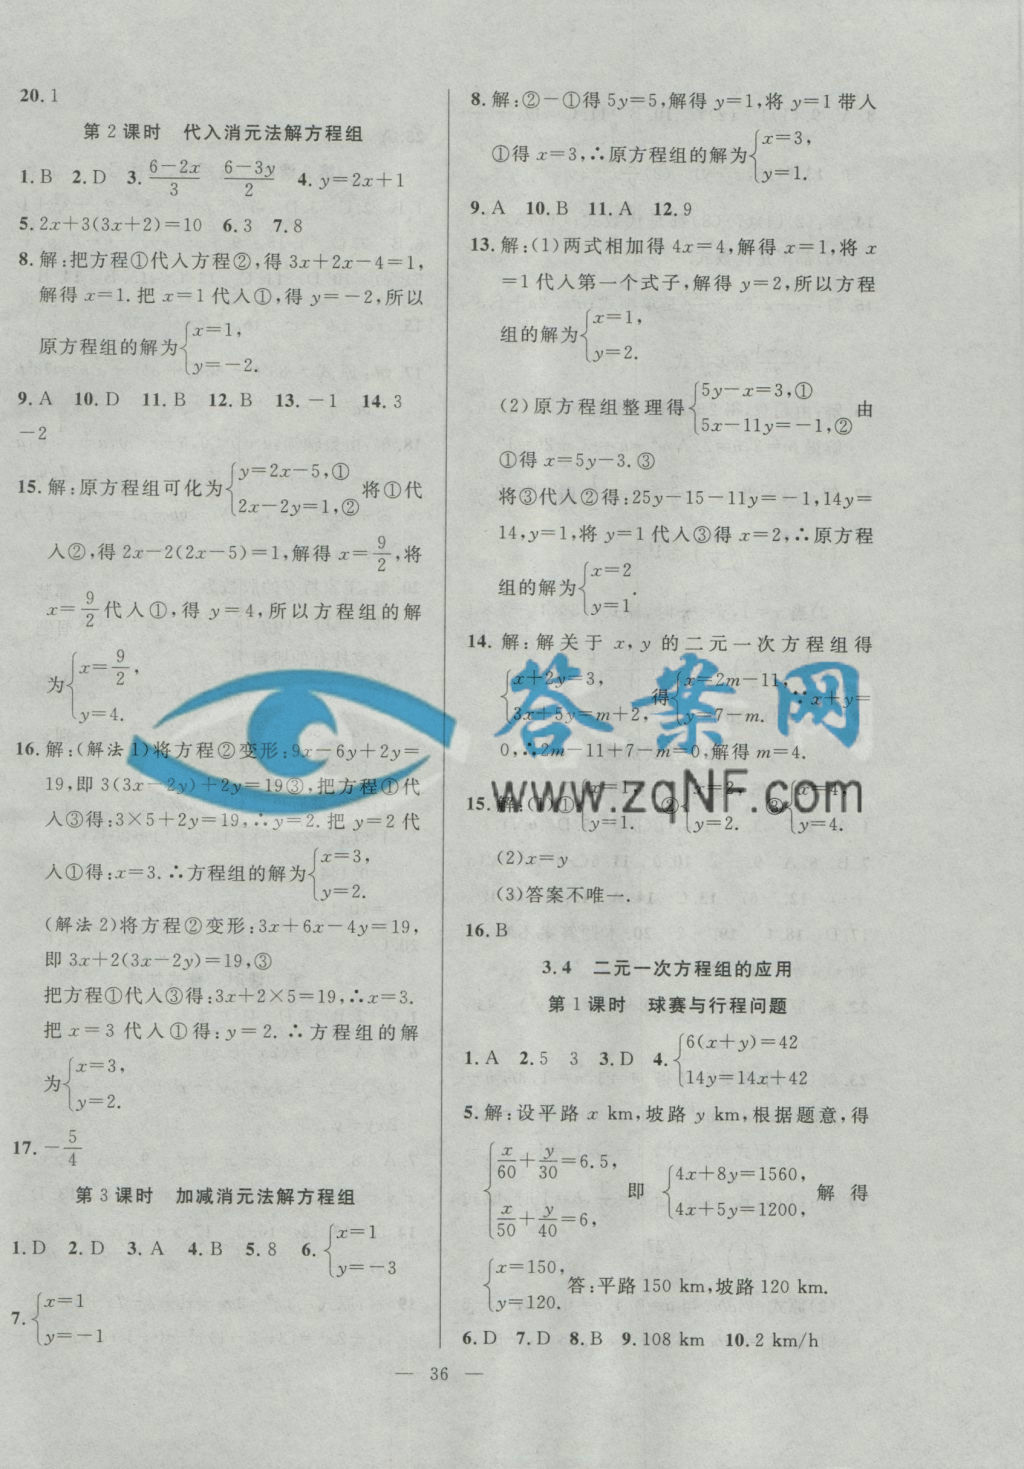 20. 1
第 2 课时　代入消元法解方程组
1. B  2. D  3. \frac{6-2x}{3}  \frac{6-3y}{2}  4. y=2x+1
5. 2x+3(3x+2)=10  6. 3  7. 8
8. 解:把方程①代入方程②,得 3x+2x-4=1,
解得 x=1. 把 x=1 代入①,得 y=-2,所以
原方程组的解为{x=1, y=-2.
9. A  10. D  11. B  12. B  13. -1  14. 3
-2
15. 解:原方程组可化为{y=2x-5,① 2x-2y=1,② 将①代
入②,得 2x-2(2x-5)=1,解得 x=\frac{9}{2},将
x=\frac{9}{2}代入①,得 y=4,所以方程组的解
为{x=\frac{9}{2}, y=4.
16. 解:(解法 1)将方程②变形:9x-6y+2y=
19,即 3(3x-2y)+2y=19③,把方程①代
入③得:3×5+2y=19,∴y=2. 把 y=2 代
入①得:x=3. ∴方程组的解为{x=3, y=2.
(解法 2)将方程②变形:3x+6x-4y=19,
即 3x+2(3x-2y)=19,③
把方程①代入③得:3x+2×5=19,∴x=3.
把 x=3 代入①得:y=2. ∴方程组的解
为{x=3, y=2.
17. -\frac{5}{4}
第 3 课时　加减消元法解方程组
1. D  2. D  3. A  4. B  5. 8  6. {x=1 y=-3
7. {x=1 y=-1
8. 解:②-①得 5y=5,解得 y=1,将 y=1 带入
①得 x=3,∴原方程组的解为{x=3, y=1.
9. A  10. B  11. A  12. 9
13. 解:(1)两式相加得 4x=4,解得 x=1,将 x
=1 代入第一个式子,解得 y=2,所以方程
组的解为{x=1, y=2.
(2)原方程组整理得{5y-x=3,① 5x-11y=-1,② 由
①得 x=5y-3. ③
将③代入②得:25y-15-11y=-1,14y=
14,y=1,将 y=1 代入③得 x=2,∴原方程
组的解为{x=2 y=1.
14. 解:解关于 x,y 的二元一次方程组得
{x+2y=3, 3x+5y=m+2, 得{x=2m-11, y=7-m. ∵x+y=
0,∴2m-11+7-m=0,解得 m=4.
15. 解:(1)① y=1. ②{x=2, y=2. ③{x=4, y=4.
(2)x=y
(3)答案不唯一.
16. B
3.4　二元一次方程组的应用
第 1 课时　球赛与行程问题
1. A  2. 5  3  3. D  4. {6(x+y)=42 14y=14x+42
5. 解:设平路 x km,坡路 y km,根据题意,得
{\frac{x}{60}+\frac{y}{30}=6.5, \frac{x}{50}+\frac{y}{40}=6, 即 {4x+8y=1560, 4x+5y=1200, 解 得
{x=150, y=120. 答:平路 150 km,坡路 120 km.
6. D  7. D  8. B  9. 108 km  10. 2 km/h
— 36 —
答案网
www.zqNF.com